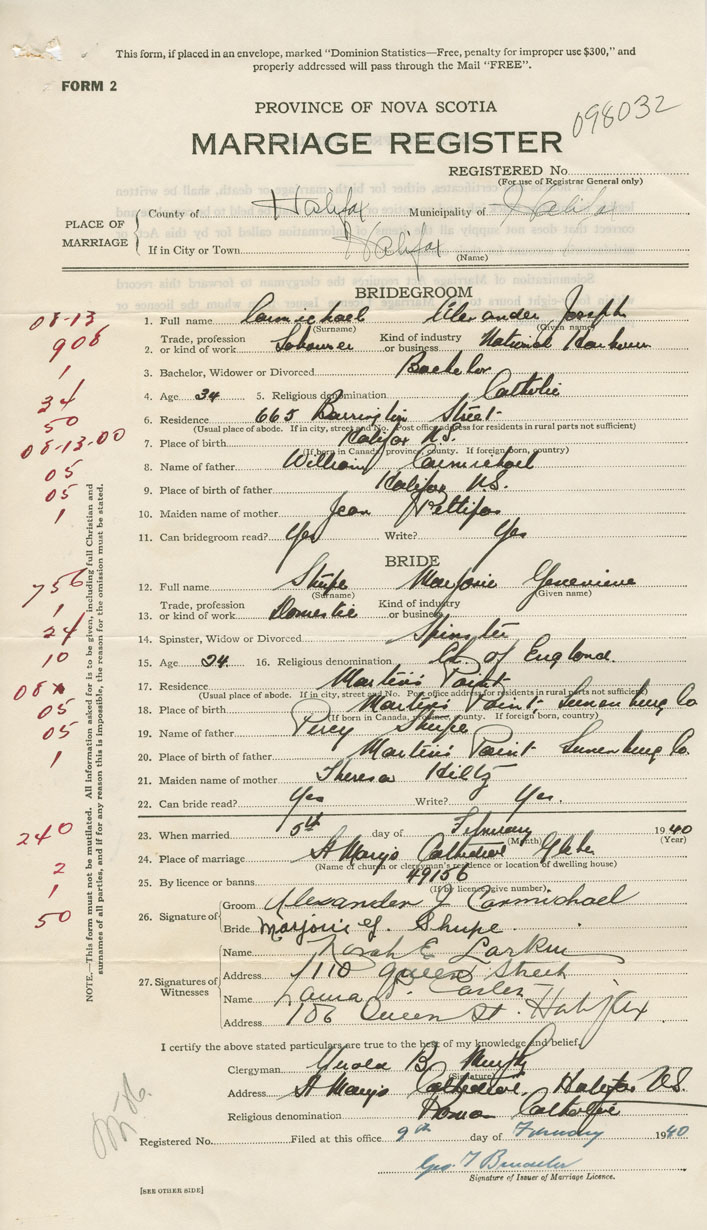 This form, if placed in an envelope, marked "Dominion Statistics—Free, penalty for improper use $300," and
properly addressed will pass through the Mail "FREE".
FORM 2
PROVINCE OF NOVA SCOTIA
098032
MARRIAGE REGISTER
REGISTERED No.
(For use of Registrar General only)
PLACE OF MARRIAGE
County of Halifax Municipality of Halifax
If in City or Town Halifax
(Name)
BRIDEGROOM
08-13
1. Full name Carmichael Alexander Joseph
(Surname) (Given name)
908
2. Trade, profession or kind of work Labourer Kind of industry or business National Harbour
1
3. Bachelor, Widower or Divorced Bachelor
34
4. Age 34 5. Religious denomination Catholic
50
6. Residence 665 Barrington Street
(Usual place of abode. If in city, street and No. Post office address for residents in rural parts not sufficient)
08-13-00
7. Place of birth Halifax N.S.
(If born in Canada, province, county. If foreign born, country)
05
8. Name of father William Carmichael
05
9. Place of birth of father Halifax N.S.
1
10. Maiden name of mother Jean
11. Can bridegroom read? Yes Write? Yes
BRIDE
756
12. Full name Shupe Marjorie Genevieve
(Surname) (Given name)
1
13. Trade, profession or kind of work Domestic Kind of industry or business
24
14. Spinster, Widow or Divorced Spinster
10
15. Age 24 16. Religious denomination Ch of England.
08
17. Residence Martins Point
(Usual place of abode. If in city, street and No. Post office address for residents in rural parts not sufficient)
05
18. Place of birth Martins Point, Lunenburg Co
(If born in Canada, province, county. If foreign born, country)
05
19. Name of father Percy Shupe
1
20. Place of birth of father Martins Point Lunenburg Co.
21. Maiden name of mother Theresa Hiltz
22. Can bride read? Yes Write? Yes.
240
23. When married 5th day of February 1940
(Month) (Year)
24. Place of marriage St Marys Cathedral Glebe
(Name of church or clergyman's residence or location of dwelling house)
2
25. By licence or banns 49156
(If by licence give number)
1
50
26. Signature of
Groom Alexander J Carmichael
Bride Marjorie G. Shupe.
27. Signatures of Witnesses
Name Norah E Larkin
Address 110 Queen Street
Name Laura
Address 106 Queen St. Halifax
I certify the above stated particulars are true to the best of my knowledge and belief.
Clergyman Gerald B. Murphy
(Signature)
Address St Marys Cathedral, Halifax N.S.
Religious denomination Roman Catholic
Registered No. Filed at this office 9th day of February 1940
Geo. T
Signature of Issuer of Marriage Licence.
[SEE OTHER SIDE]
NOTE.—This form must not be mutilated. All information asked for is to be given, including full Christian and
surnames of all parties, and if for any reason this is impossible, the reason for the omission must be stated.